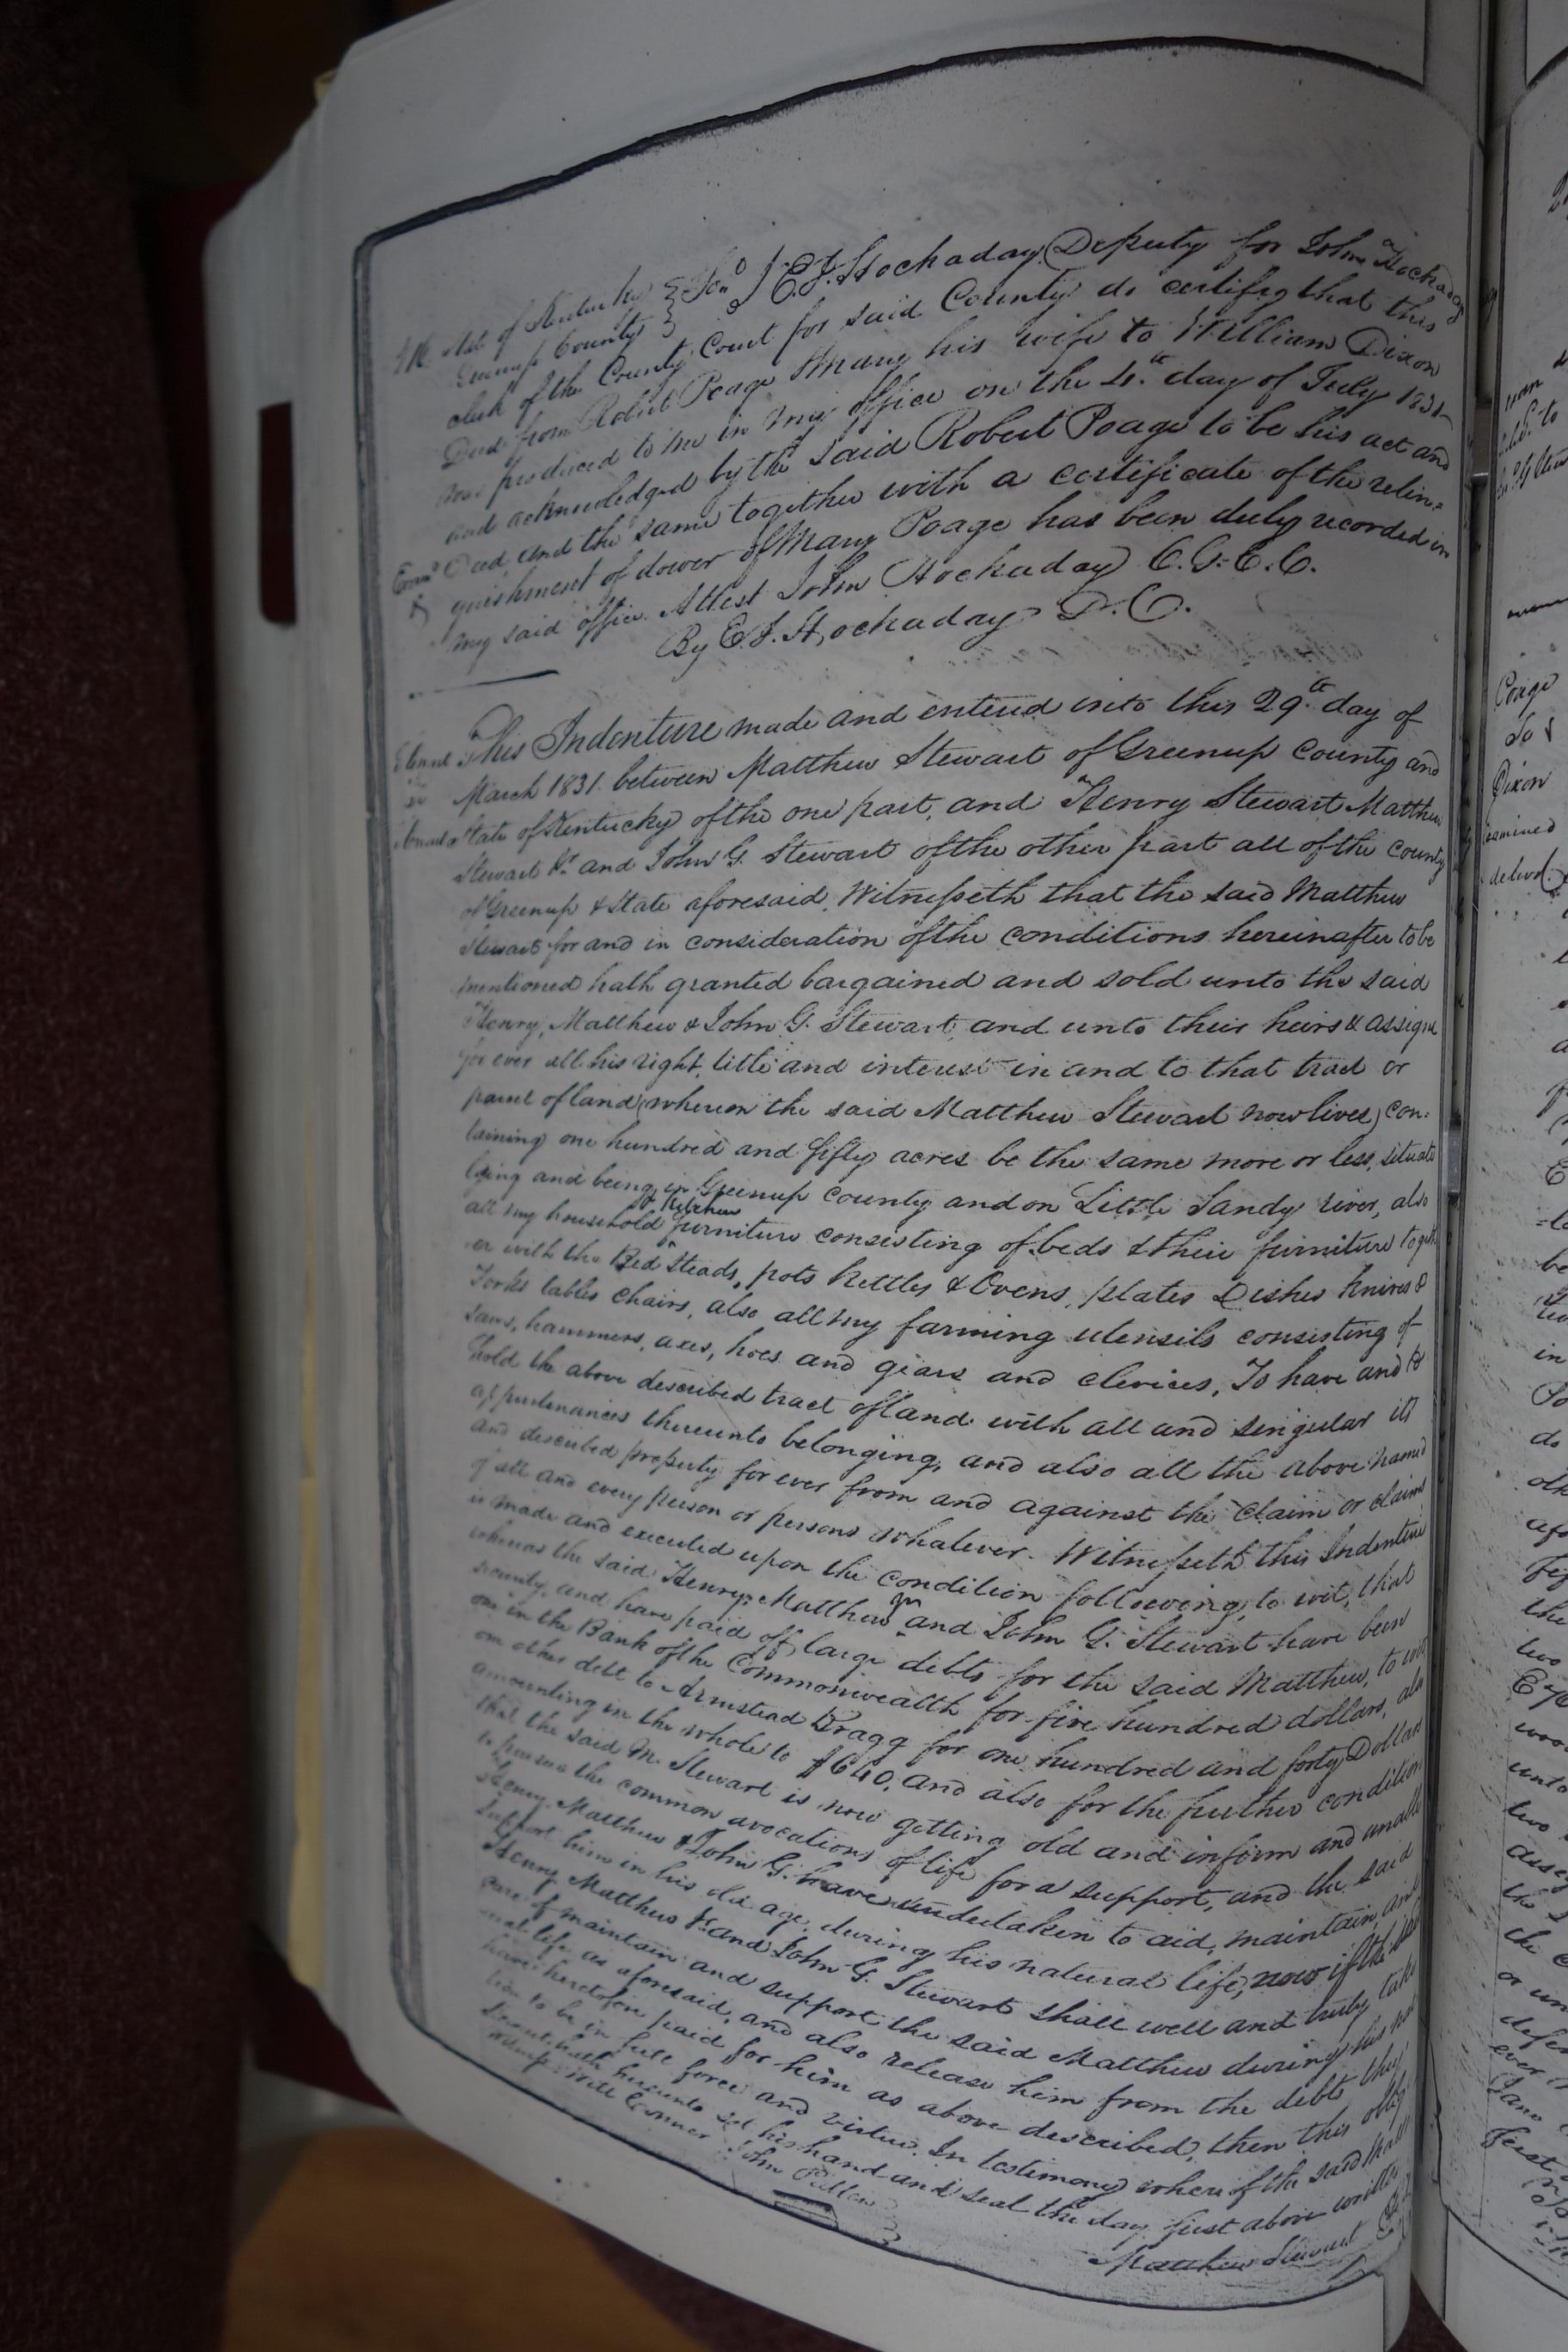 State of Kentucky
Greenup County } Sct. I E. J. Hockaday Deputy for John Hockaday
clerk of the County Court for said County do certify that this
Deed from Robert Poage & Mary his wife to William Dixon
was produced to me in my office on the 4th day of July 1831
and acknowledged by the said Robert Poage to be his act and
Examd Deed and the same together with a certificate of the relin=
quishment of dower of Mary Poage has been duly recorded in
my said office. Attest John Hockaday C.G.C.C.
By E. J. Hockaday D.C.
This Indenture made and entered into this 29th day of
March 1831 between Matthew Stewart of Greenup County and
State of Kentucky of the one part, and Henry Stewart Matthew
Stewart Jr and John G. Stewart of the other part all of the County
of Greenup & State aforesaid, Witnesseth that the said Matthew
Stewart for and in consideration of the conditions hereinafter to be
mentioned hath granted bargained and sold unto the said
Henry, Matthew & John G. Stewart, and unto their heirs & assigns
for ever all his right, title and interest in and to that tract or
parcel of land (whereon the said Matthew Stewart now lives) con=
taining one hundred and fifty acres be the same more or less, situate
lying and being in Greenup County and on Little Sandy river, also
all my household & Kitchen furniture consisting of beds & their furniture togeth
er with the Bed steads, pots kettles & Ovens, plates Dishes knives &
Forks tables chairs, also all my farming utensils consisting of
saws, hammers, axes, hoes and gears and clevices, To have and to
hold the above described tract of land with all and singular its
appurtenances thereunto belonging, and also all the above named
and described property for ever from and against the claim or claims
of all and every person or persons whatever. Witnesseth this Indenture
is made and executed upon the condition following, to wit, that
whereas the said Henry, Matthew Jr and John G. Stewart have been
security, and have paid off large debts for the said Matthew, to wit
one in the Bank of the Commonwealth for five hundred dollars, also
one other debt to Armstead Bragg for one hundred and forty Dollars
amounting in the whole to $640, and also for the further condition
that the said M. Stewart is now getting old and infirm and unable
to pursue the common avocations of life for a support, and the said
Henry, Matthew & John G. have undertaken to aid, maintain, and
support him in his old age, during his natural life, now if the said
Henry Matthew Jr and John G. Stewart shall well and truly take
care of maintain and support the said Matthew during his nat
ural life as aforesaid, and also release him from the debts they
have heretofore paid for him as above described, then this oblig
tion to be in full force and virtue. In testimony whereof the said Matt
Stewart hath hereunto set his hand and seal the day first above written
John
Matthew Stewart
Poage
to
Dixon
examined